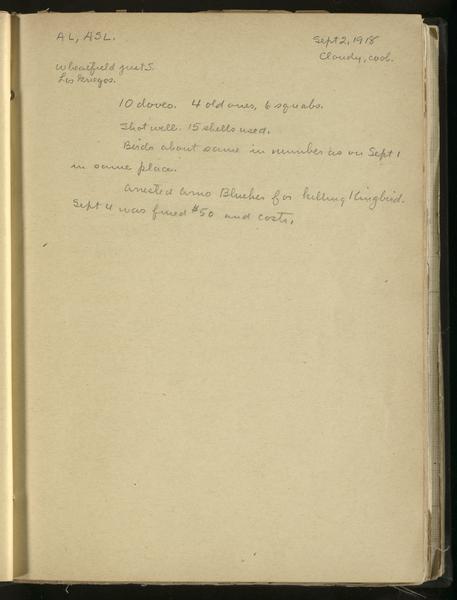 AL, ASL.
Sept 2, 1918
Cloudy, cool.
Wheatfield just S.
Los Griegos.
10 doves. 4 old ones, 6 squabs.
Shot well. 15 shells used.
Birds about same in number as on Sept 1
in same place.
Arrested Arno Blueher for killing Kingbird.
Sept 4 was fined $50 and costs.